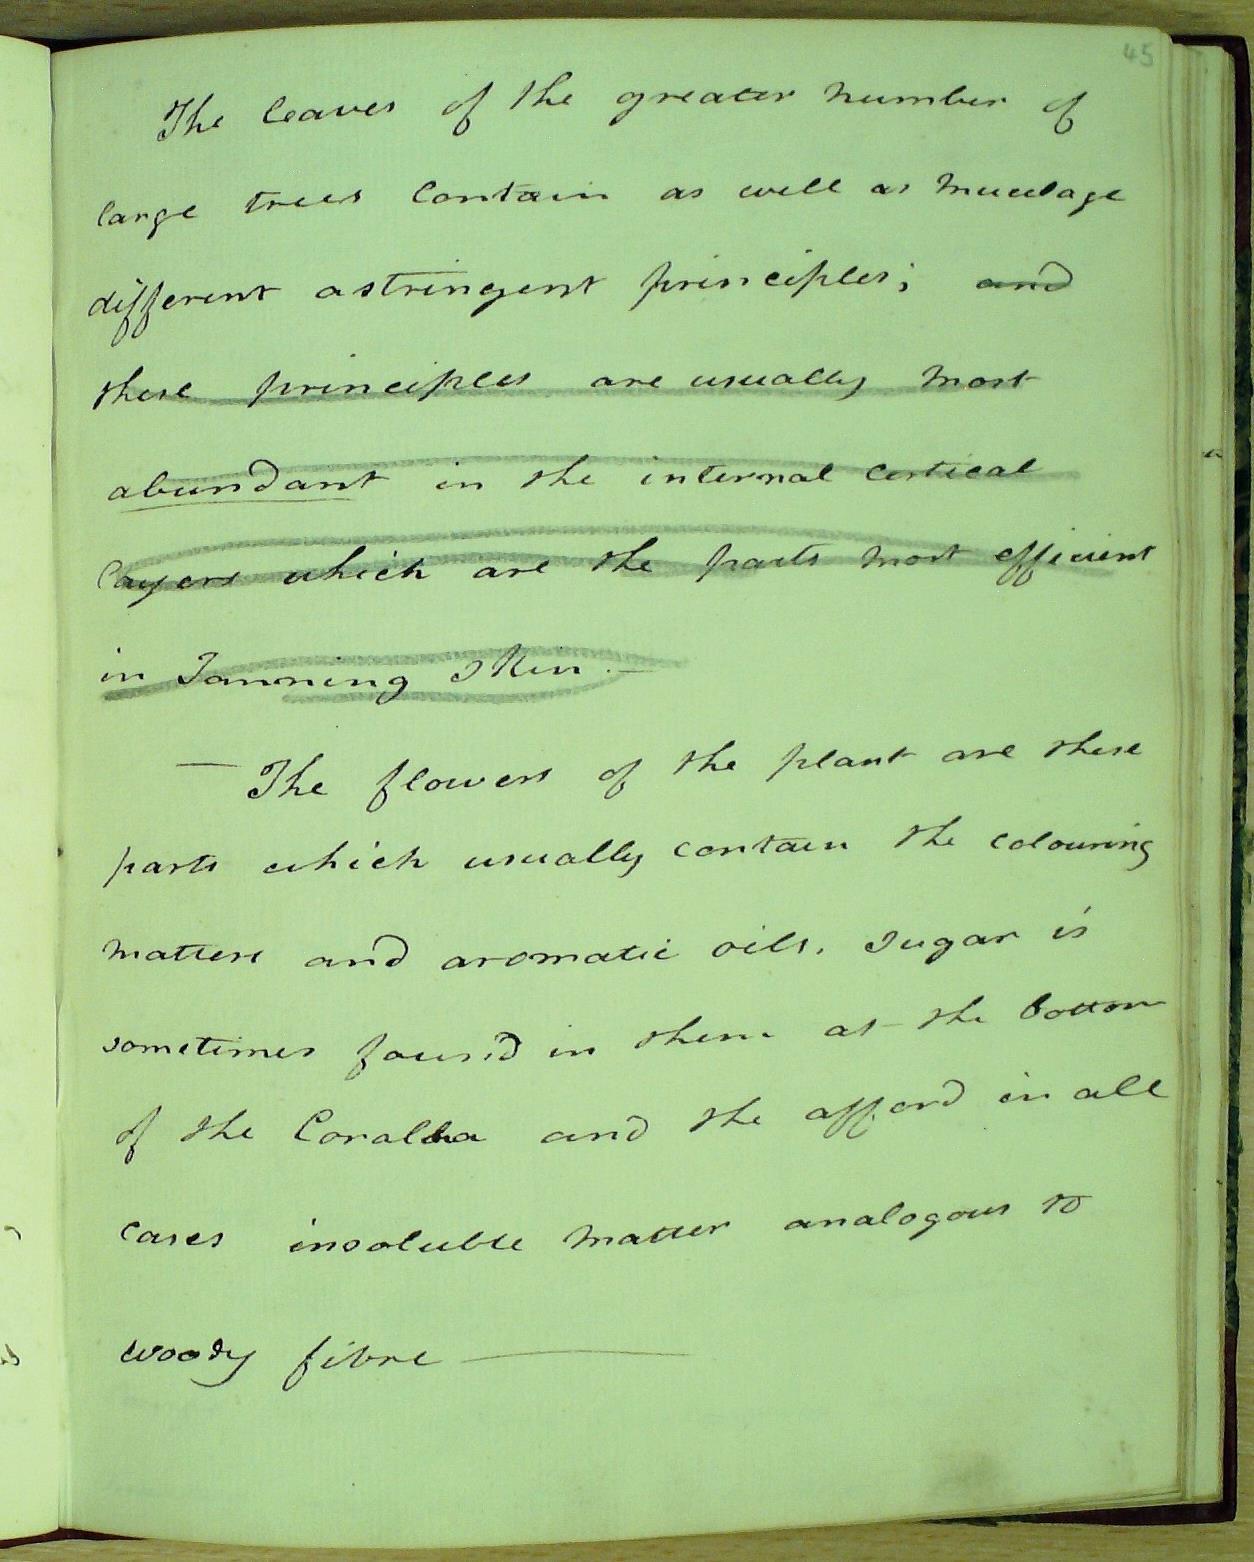 45
The leaves of the greater number of
large trees contain as well as Mucilage
different astringent principles; and
these principles are usually most
abundant in the internal cortical
layers which are the parts most efficient
in Tanning skin. —
— The flowers of the plant are these
parts which usually contain the colouring
matters and aromatic oils. Sugar is
sometimes found in them at the bottom
of the Coralla and the afford in all
cases insoluble matter analogous to
woody fibre —